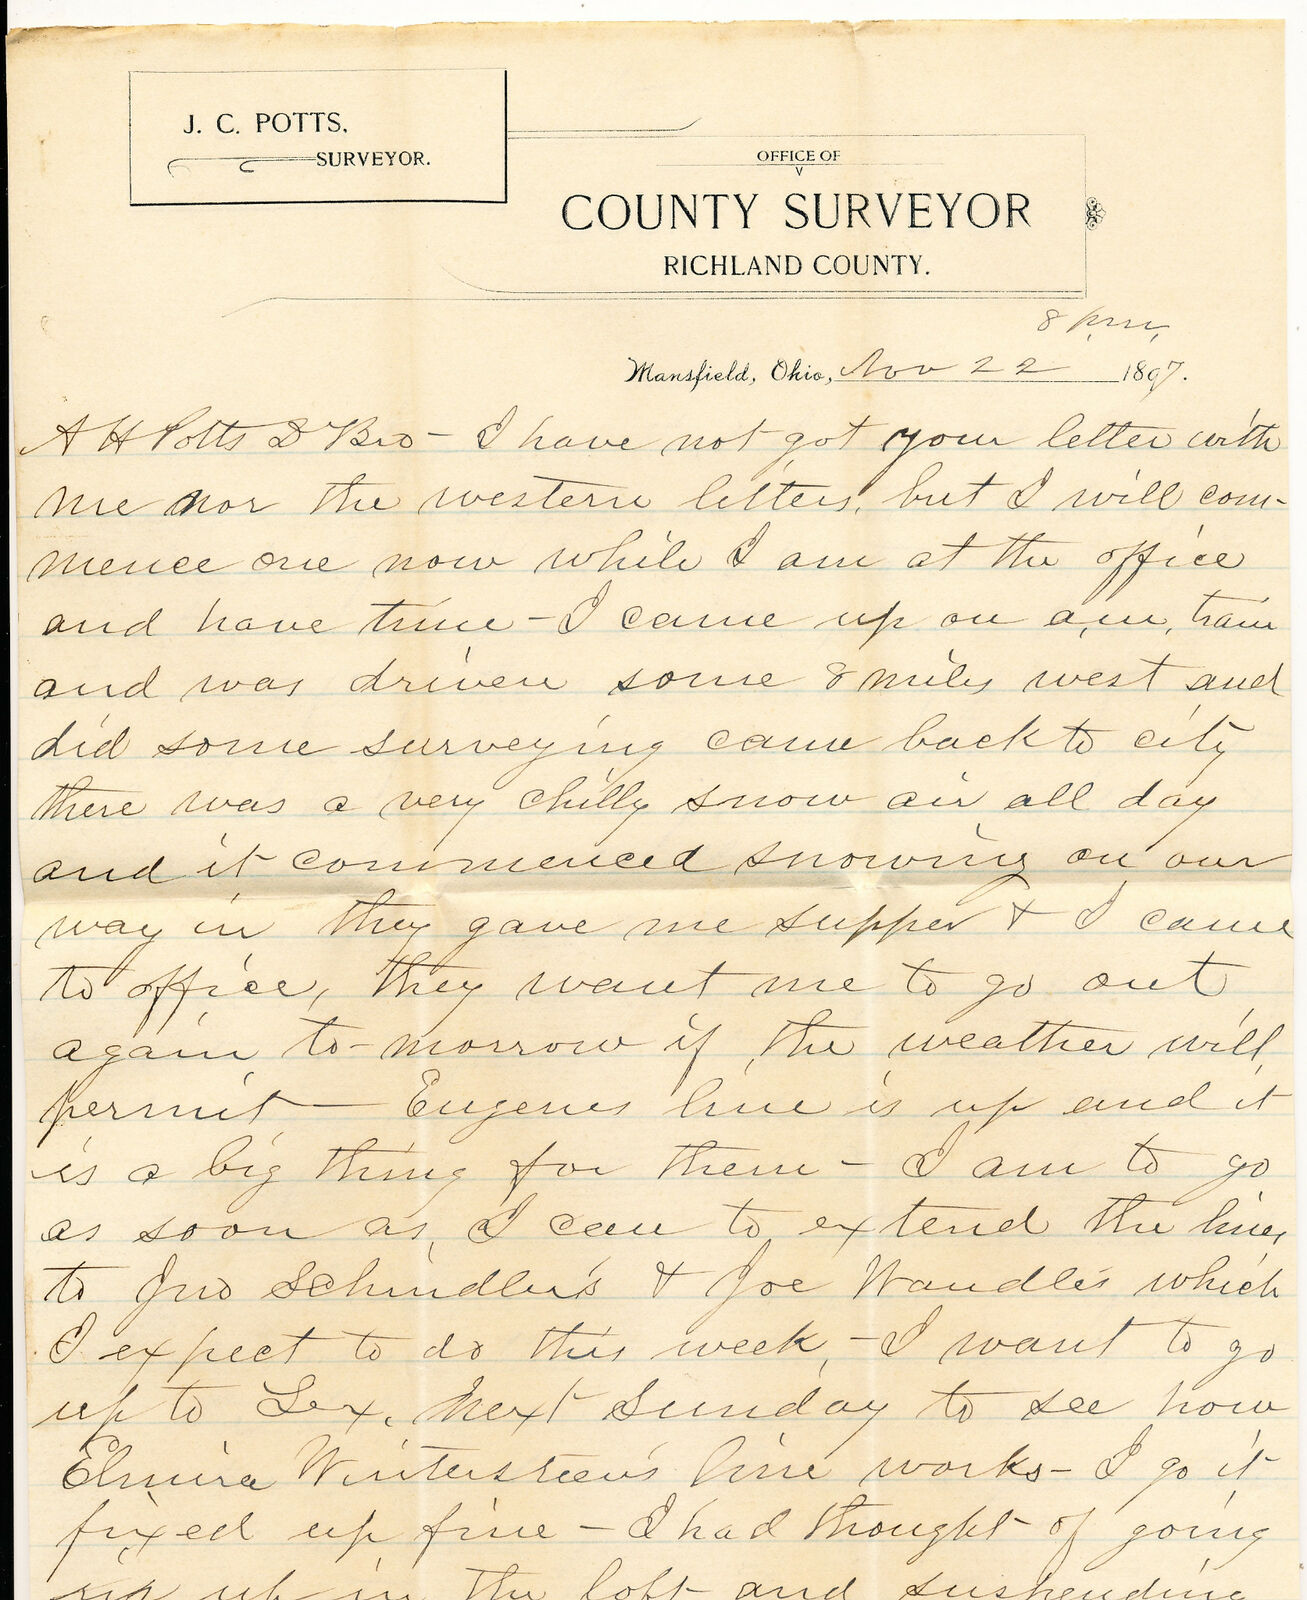 J. C. POTTS,
SURVEYOR.
OFFICE OF
COUNTY SURVEYOR
RICHLAND COUNTY.
8 p.m.
Mansfield, Ohio, Nov 22 1897.
A H Potts D Bro - I have not got your letter with
me nor the western letters, but I will com-
mence one now while I am at the office
and have time - I came up on a.m. train
and was driven some 8 miles west and
did some surveying came back to city
there was a very chilly snow air all day
and it commenced snowing on our
way in they gave me supper & I came
to office, they want me to go out
again to-morrow if the weather will
permit - Eugenes line is up and it
is a big thing for them - I am to go
as soon as I can to extend the line
to Jno Schindler's & Joe Wandles which
I expect to do this week, - I want to go
up to Lex. next Sunday to see how
Elmira Winterstein's line works - I go it
fixed up fine - I had thought of going
up in the loft and suspending